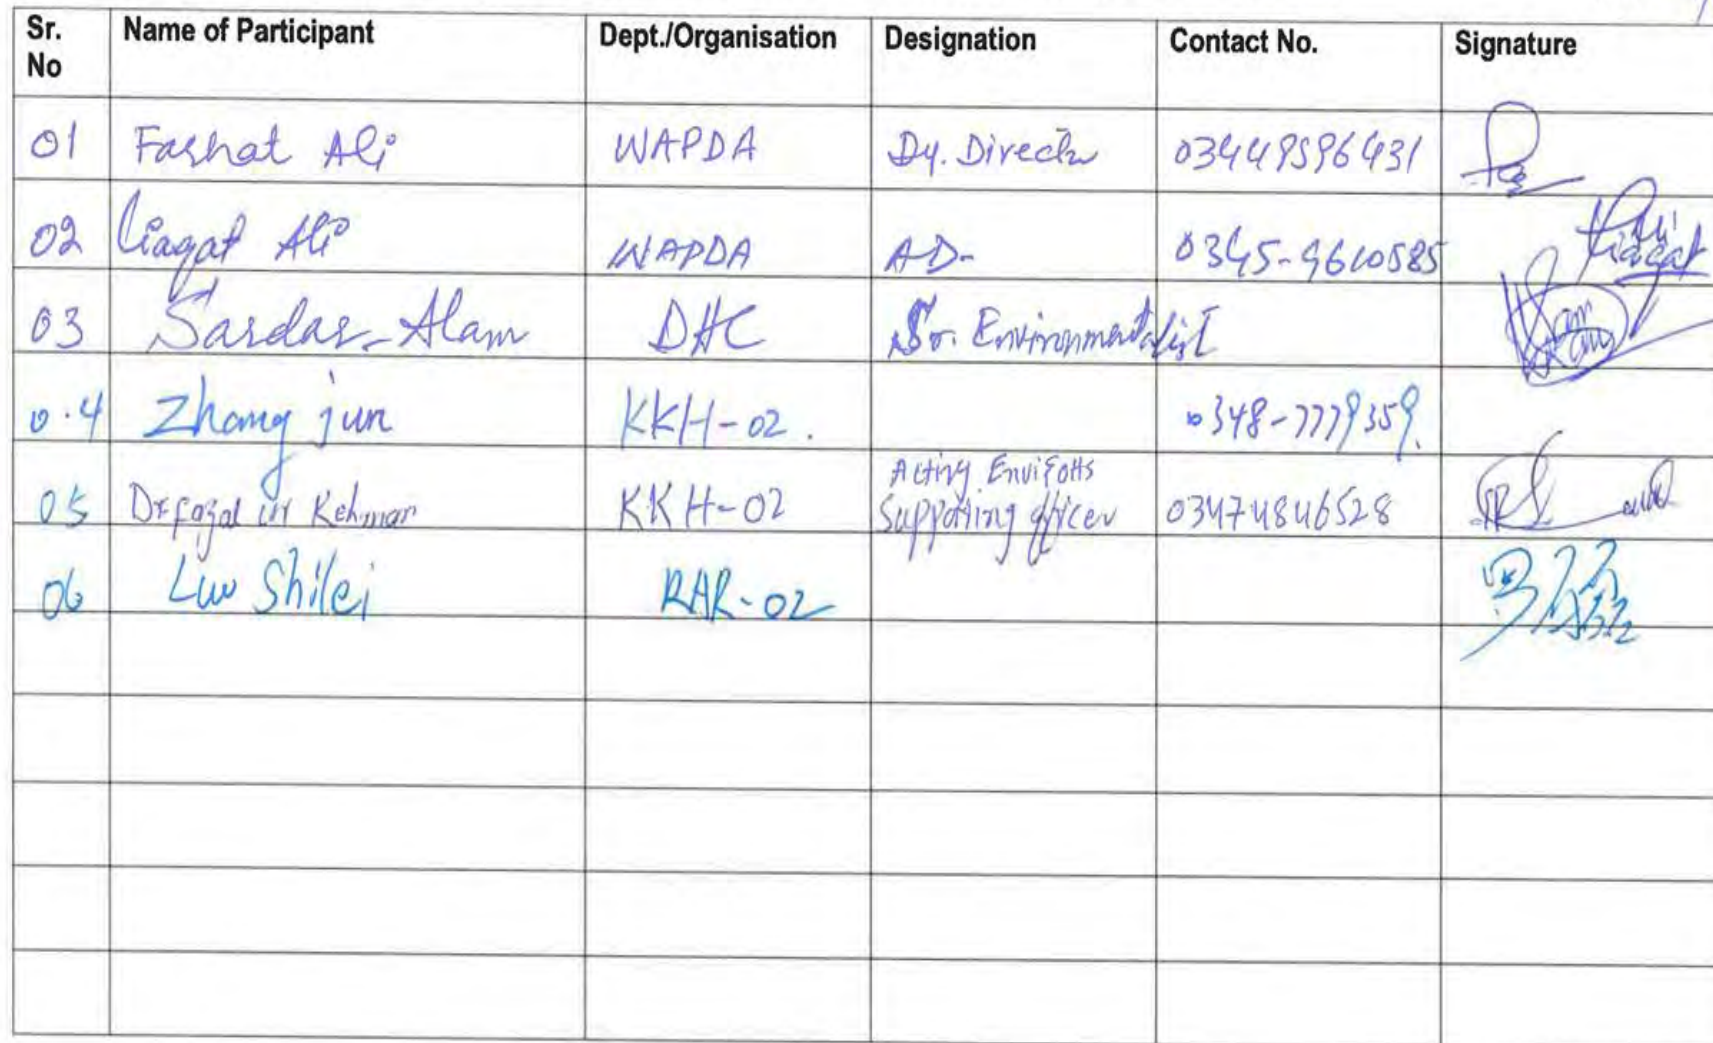 Sr. No Name of Participant Dept./Organisation Designation Contact No. Signature
01 Farhat Ali WAPDA Dy. Director 03449596431
02 Liaqat Ali WAPDA AD- 0345-9610585 Ali Liaqat
03 Sardar Alam DHC Sr. Environmentalist
0.4 Zhang jun KKH-02. 0348-7779359.
05 Dr Fazal ur Rehman KKH-02 Acting Supporting officer 03474846528
06 Luo Shilei RAR-02